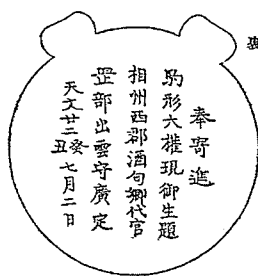 裏
奉寄進
駒形大權現御生題
相州西郡酒匂郷代官
部出雲守廣定
天文廿二癸丑七月二日